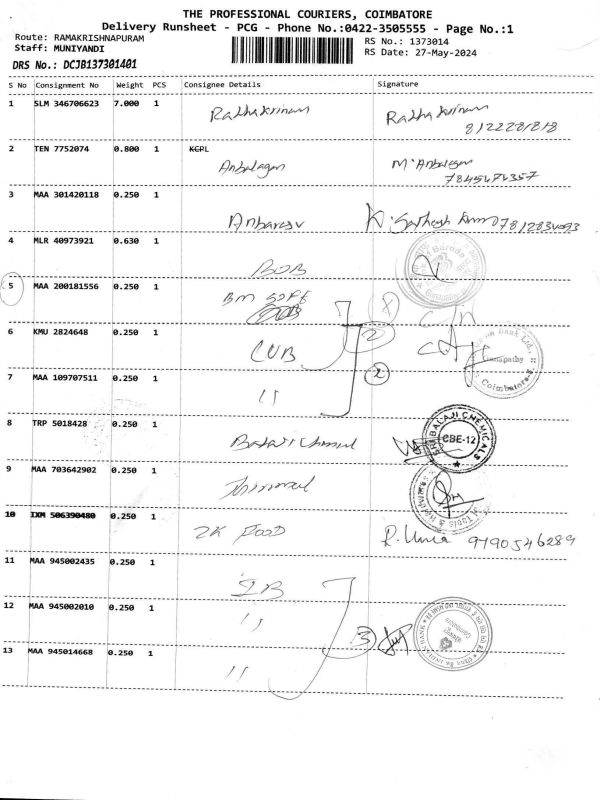 THE PROFESSIONAL COURIERS, COIMBATORE
Delivery Runsheet - PCG - Phone No.:0422-3505555 - Page No.:1
Route: RAMAKRISHNAPURAM
Staff: MUNIYANDI
RS No.: 1373014
RS Date: 27-May-2024
DRS No.: DCJB137301401
S No Consignment No Weight PCS Consignee Details Signature
1 SLM 346706623 7.000 1
2 TEN 7752074 0.800 1 KCPL
Anbalagan M. Anbalagan
3 MAA 301420118 0.250 1
4 MLR 40973921 0.630 1
BOB
Baroda
5 MAA 200181556 0.250 1
BM SOFT
6 KMU 2824648 0.250 1
CUB
2
Bank Ltd.,
Ganapathy
Coimbatore
7 MAA 109707511 0.250 1
11
2
8 TRP 5018428 0.250 1
BALAJI CHEMICALS
CBE-12
9 MAA 703642902 0.250 1
10 IXM 506390480 0.250 1
2K FOOD R. Uma 9190546289
11 MAA 945002435 0.250 1
IB
12 MAA 945002010 0.250 1
11
3
INDIAN BANK
13 MAA 945014668 0.250 1
11